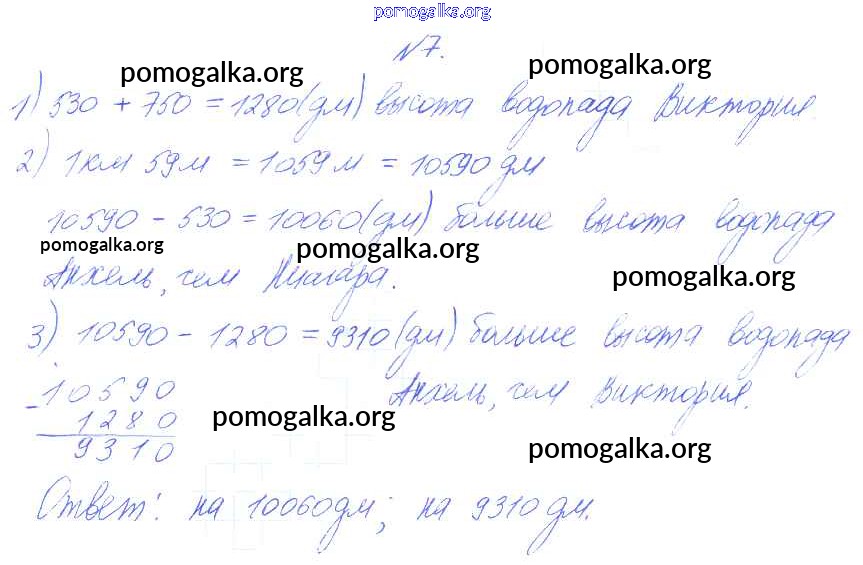 pomogalka.org
№7.
pomogalka.org
pomogalka.org
1) 530 + 750 = 1280 (дм) высота водопада Виктория.
2) 1 км 59 м = 1059 м = 10590 дм
10590 - 530 = 10060 (дм) больше высота водопада
pomogalka.org
pomogalka.org
pomogalka.org
Анхель, чем Ниагара.
3) 10590 - 1280 = 9310 (дм) больше высота водопада
Анхель, чем Виктория.
- 10590
1280
9310
pomogalka.org
pomogalka.org
Ответ: на 10060 дм; на 9310 дм.